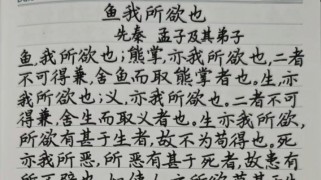 鱼我所欲也
先秦 孟子及其弟子
鱼,我所欲也;熊掌,亦我所欲也,二者
不可得兼,舍鱼而取熊掌者也。生,亦
我所欲也;义,亦我所欲也。二者不可
得兼,舍生而取义者也。生亦我所欲,
所欲有甚于生者,故不为苟得也。死
亦我所恶,所恶有甚于死者,故患有